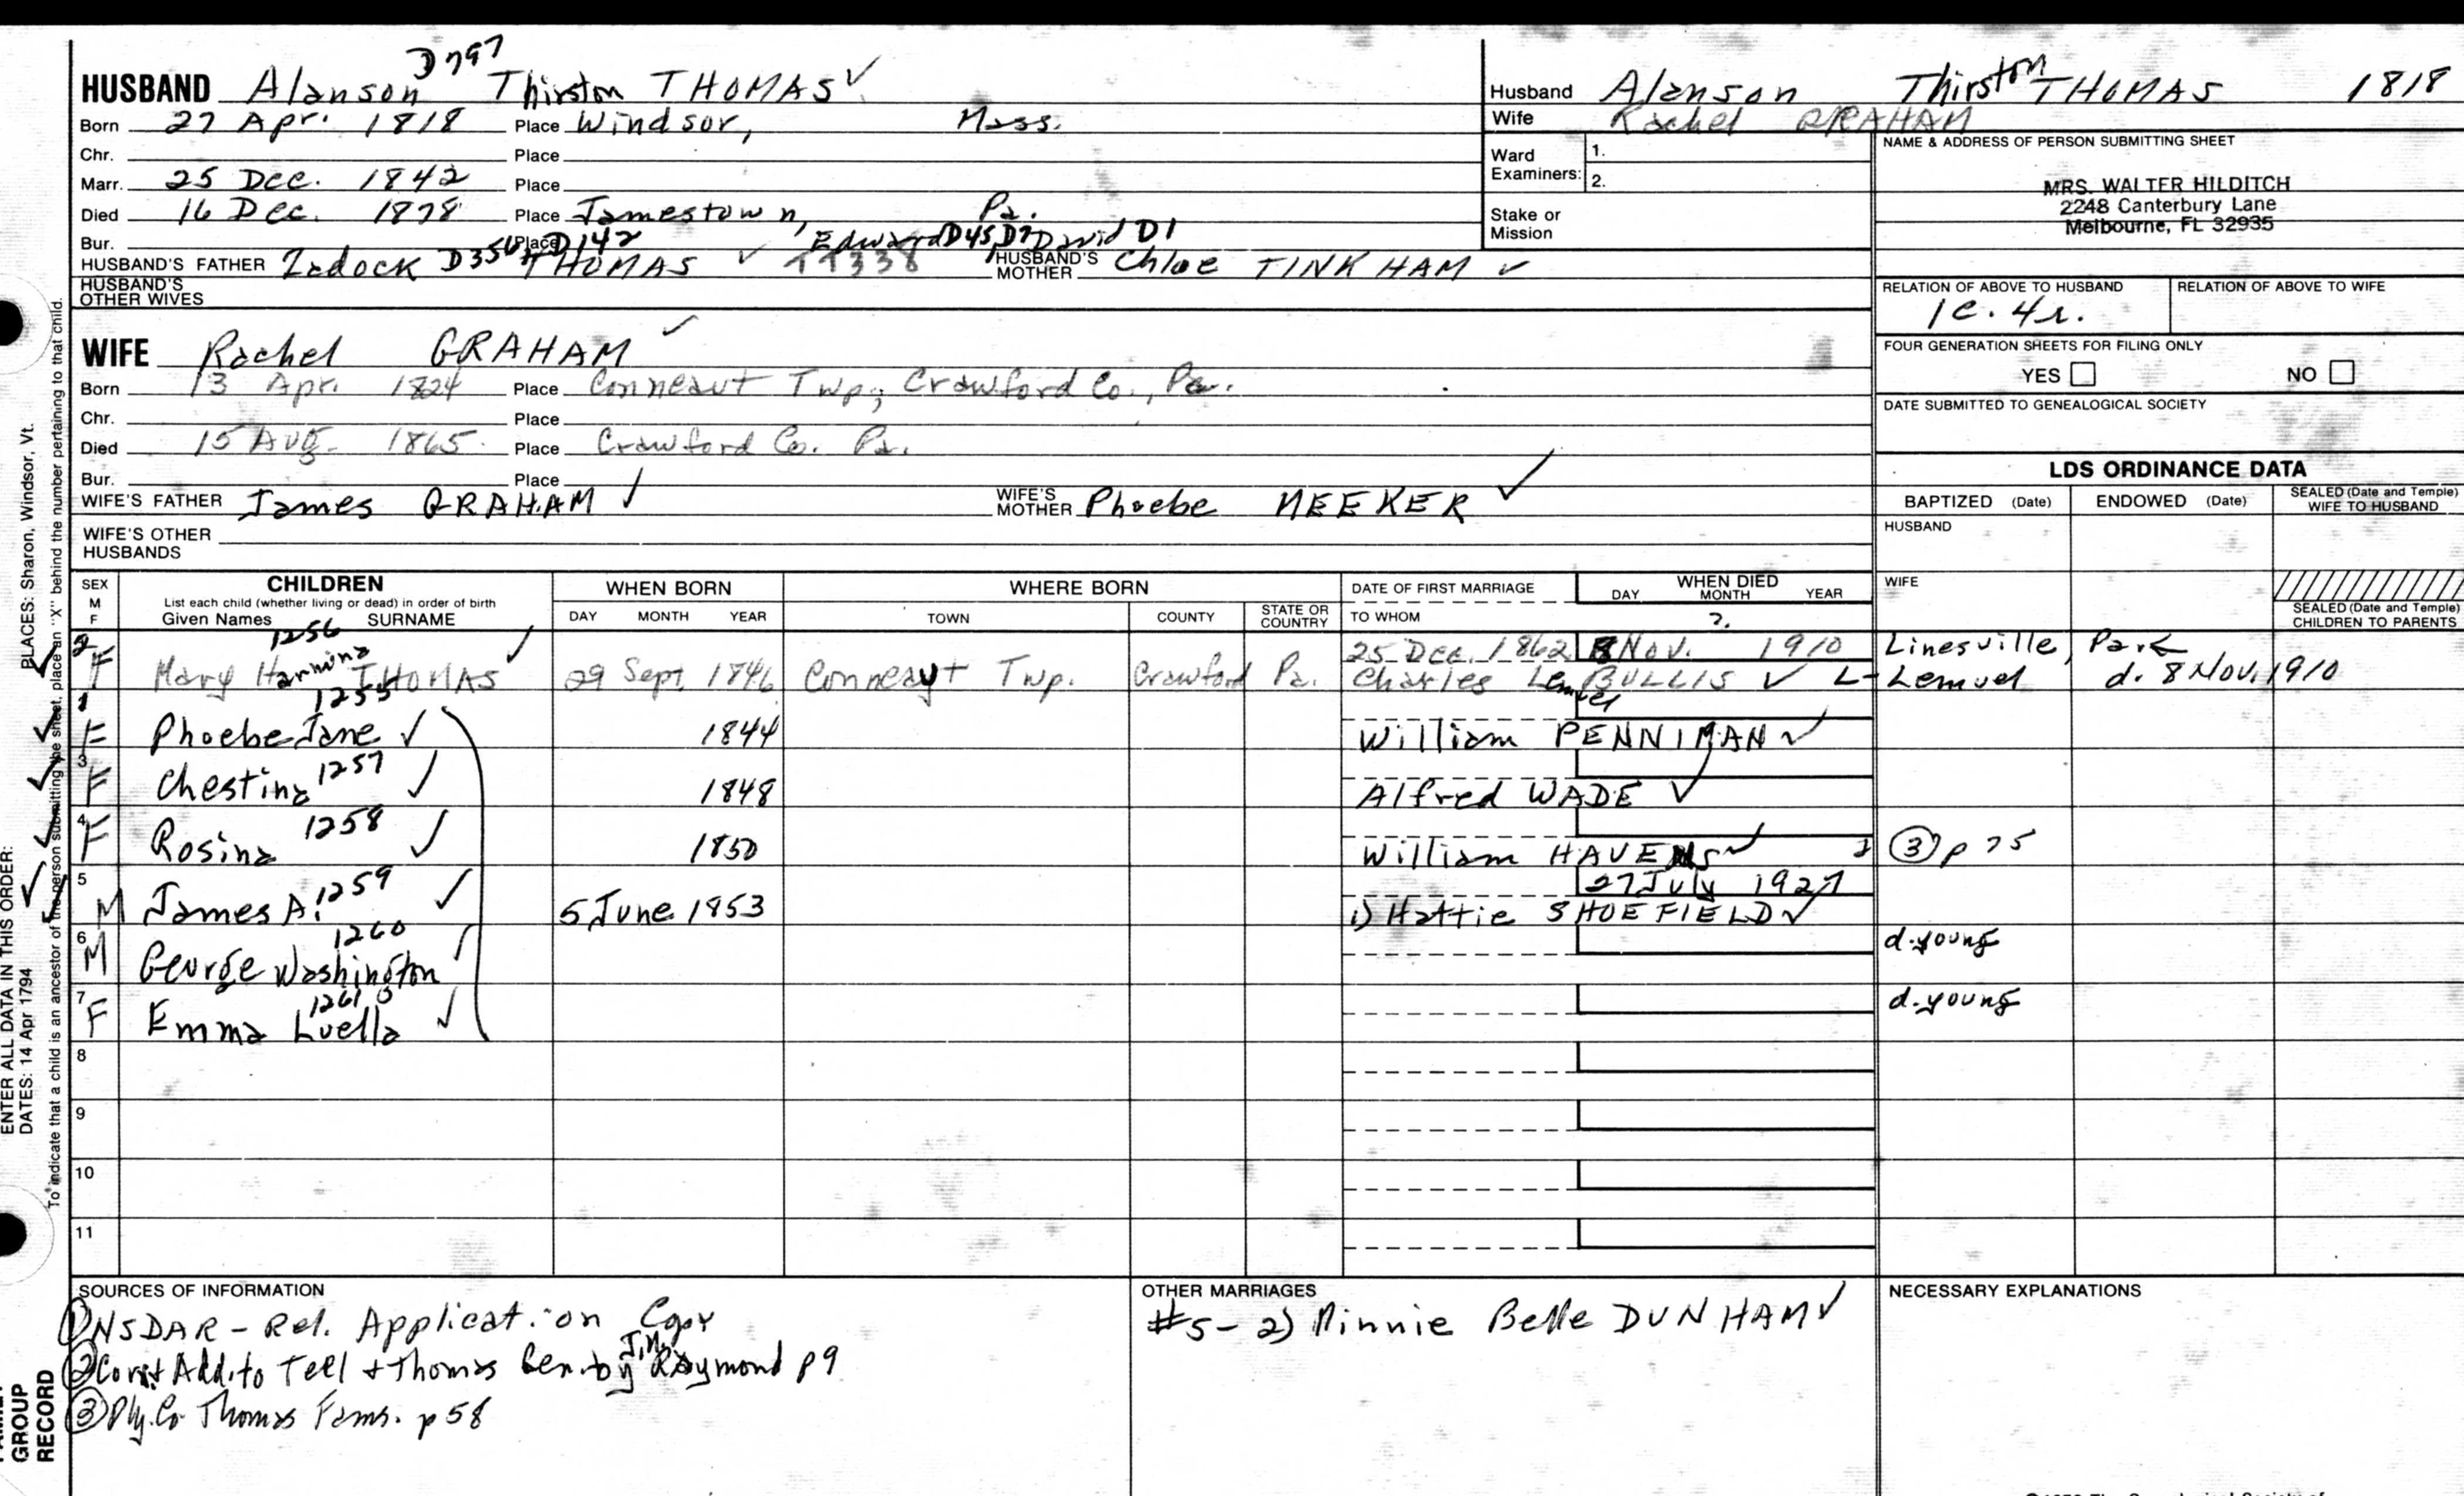 D797
HUSBAND Alanson Thirston THOMAS ✓
Born 27 Apr. 1818 Place Windsor, Mass.
Chr. Place
Marr. 25 Dec. 1842 Place
Died 16 Dec. 1878 Place Jamestown, Pa.
Bur. Place
D356, D142 Edward D45, D7 David D1
HUSBAND'S FATHER Zadock THOMAS ✓ TT338 HUSBAND'S MOTHER Chloe TINKHAM ✓
HUSBAND'S OTHER WIVES
WIFE Rachel GRAHAM ✓
Born 13 Apr. 1824 Place Conneaut Twp., Crawford Co., Pa.
Chr. Place
Died 15 Aug. 1865 Place Crawford Co. Pa.
Bur. Place
WIFE'S FATHER James GRAHAM ✓ WIFE'S MOTHER Phoebe MEEKER ✓
WIFE'S OTHER HUSBANDS
Husband Alanson Thirston THOMAS 1818
Wife Rachel GRAHAM
Ward Examiners: 1.
2.
Stake or Mission
NAME & ADDRESS OF PERSON SUBMITTING SHEET
MRS. WALTER HILDITCH
2248 Canterbury Lane
Melbourne, FL 32935
RELATION OF ABOVE TO HUSBAND RELATION OF ABOVE TO WIFE
1c. 4r.
FOUR GENERATION SHEETS FOR FILING ONLY
YES NO
DATE SUBMITTED TO GENEALOGICAL SOCIETY
LDS ORDINANCE DATA
BAPTIZED (Date) ENDOWED (Date) SEALED (Date and Temple) WIFE TO HUSBAND
HUSBAND
WIFE
SEALED (Date and Temple) CHILDREN TO PARENTS
SEX M F CHILDREN WHEN BORN WHERE BORN DATE OF FIRST MARRIAGE WHEN DIED
List each child (whether living or dead) in order of birth
Given Names SURNAME DAY MONTH YEAR TOWN COUNTY STATE OR COUNTRY TO WHOM DAY MONTH YEAR
1256 ?
2 F Mary Harmina THOMAS ✓ 29 Sept. 1846 Conneaut Twp. Crawford Pa. 25 Dec. 1862 8 Nov. 1910 Linesville, Pa
Charles Lemuel BULLIS ✓ L- Lemuel d. 8 Nov. 1910
1 F Phoebe Jane 1255 ✓ 1844 William PENNIMAN ✓
3 F Chestina 1257 ✓ 1848 Alfred WADE ✓
4 F Rosina 1258 ✓ 1850 William HAVENS ✓ ③ p 75
5 M James A. 1259 ✓ 5 June 1853 27 July 1927
1) Hattie SHOEFIELD ✓
6 M George Washington 1260 ✓ d. young
7 F Emma Luella 1261 ✓ d. young
8
9
10
11
SOURCES OF INFORMATION
① NSDAR - Rel. Application Copy
② Corr + Add. to Tell + Thomas Gen. by J.M. Raymond p 9
③ Ply. Co Thomas Fams. p 58
OTHER MARRIAGES
#5 - 2) Minnie Belle DUNHAM ✓
NECESSARY EXPLANATIONS
ENTER ALL DATA IN THIS ORDER:
PLACES: Sharon, Windsor, Vt.
DATES: 14 Apr 1794
To indicate that a child is an ancestor of the person submitting the sheet, place an "X" behind the number pertaining to that child.
GROUP
RECORD